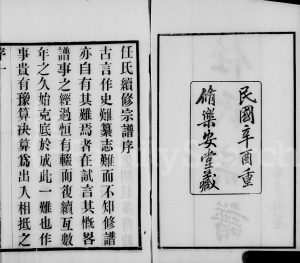 民國辛酉重
脩樂安堂藏
任氏續修宗譜序
古言作史難纂志難而不知修譜
亦自有其難焉者在試言其概畧
譜事之經過恒有輟而復續亙數
年之久始克底於成此一難也作
事貴有豫算決算為出入相抵之
序一